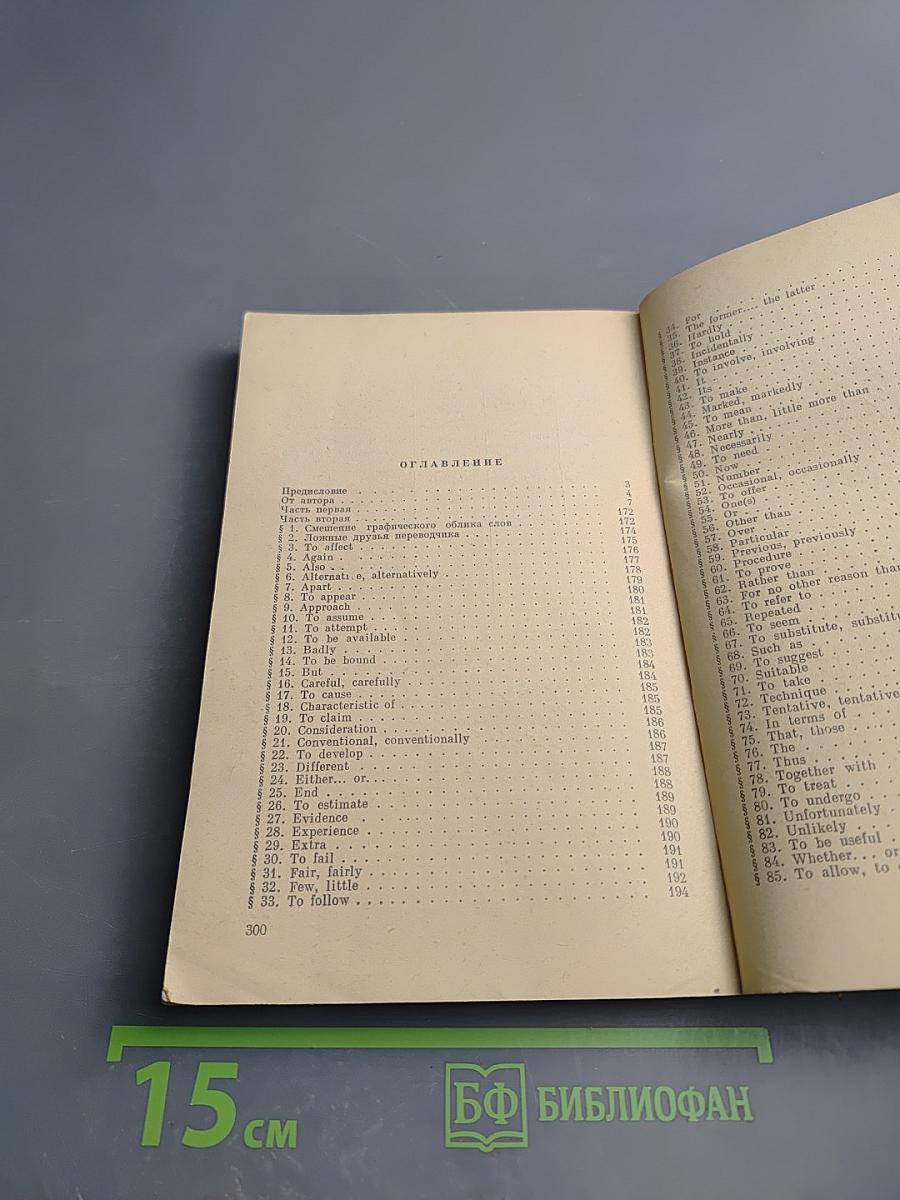 ОГЛАВЛЕНИЕ
Предисловие . . . 3
От автора . . . 4
Часть первая . . . 7
Часть вторая . . . 172
§ 1. Смешение графического облика слов . . . 172
§ 2. Ложные друзья переводчика . . . 174
§ 3. To affect . . . 175
§ 4. Again . . . 176
§ 5. Also . . . 177
§ 6. Alternative, alternatively . . . 178
§ 7. Apart . . . 179
§ 8. To appear . . . 180
§ 9. Approach . . . 181
§ 10. To assume . . . 181
§ 11. To attempt . . . 182
§ 12. To be available . . . 182
§ 13. Badly . . . 183
§ 14. To be bound . . . 183
§ 15. But . . . 184
§ 16. Careful, carefully . . . 184
§ 17. To cause . . . 185
§ 18. Characteristic of . . . 185
§ 19. To claim . . . 185
§ 20. Consideration . . . 186
§ 21. Conventional, conventionally . . . 186
§ 22. To develop . . . 187
§ 23. Different . . . 187
§ 24. Either... or. . . . 188
§ 25. End . . . 188
§ 26. To estimate . . . 189
§ 27. Evidence . . . 189
§ 28. Experience . . . 190
§ 29. Extra . . . 190
§ 30. To fail . . . 191
§ 31. Fair, fairly . . . 191
§ 32. Few, little . . . 192
§ 33. To follow . . . 194
300
§ 34. For
§ 35. The former... the latter
§ 36. Hardly
§ 37. To hold
§ 38. Incidentally
§ 39. Instance
§ 40. To involve, involving
§ 41. It
§ 42. Its
§ 43. To make
§ 44. Marked, markedly
§ 45. To mean
§ 46. More than, little more than
§ 47. Nearly
§ 48. Necessarily
§ 49. To need
§ 50. Now
§ 51. Number
§ 52. Occasional, occasionally
§ 53. To offer
§ 54. One(s)
§ 55. Or
§ 56. Other than
§ 57. Over
§ 58. Particular
§ 59. Previous, previously
§ 60. Procedure
§ 61. To prove
§ 62. Rather than
§ 63. For no other reason than
§ 64. To refer to
§ 65. Repeated
§ 66. To seem
§ 67. To substitute,
§ 68. Such as
§ 69. To suggest
§ 70. Suitable
§ 71. To take
§ 72. Technique
§ 73. Tentative,
§ 74. In terms of
§ 75. That, those
§ 76. The
§ 77. Thus
§ 78. Together with
§ 79. To treat
§ 80. To undergo
§ 81. Unfortunately
§ 82. Unlikely
§ 83. To be useful
§ 84. Whether... or
§ 85. To allow, to
15 см
БФ БИБЛИОФАН